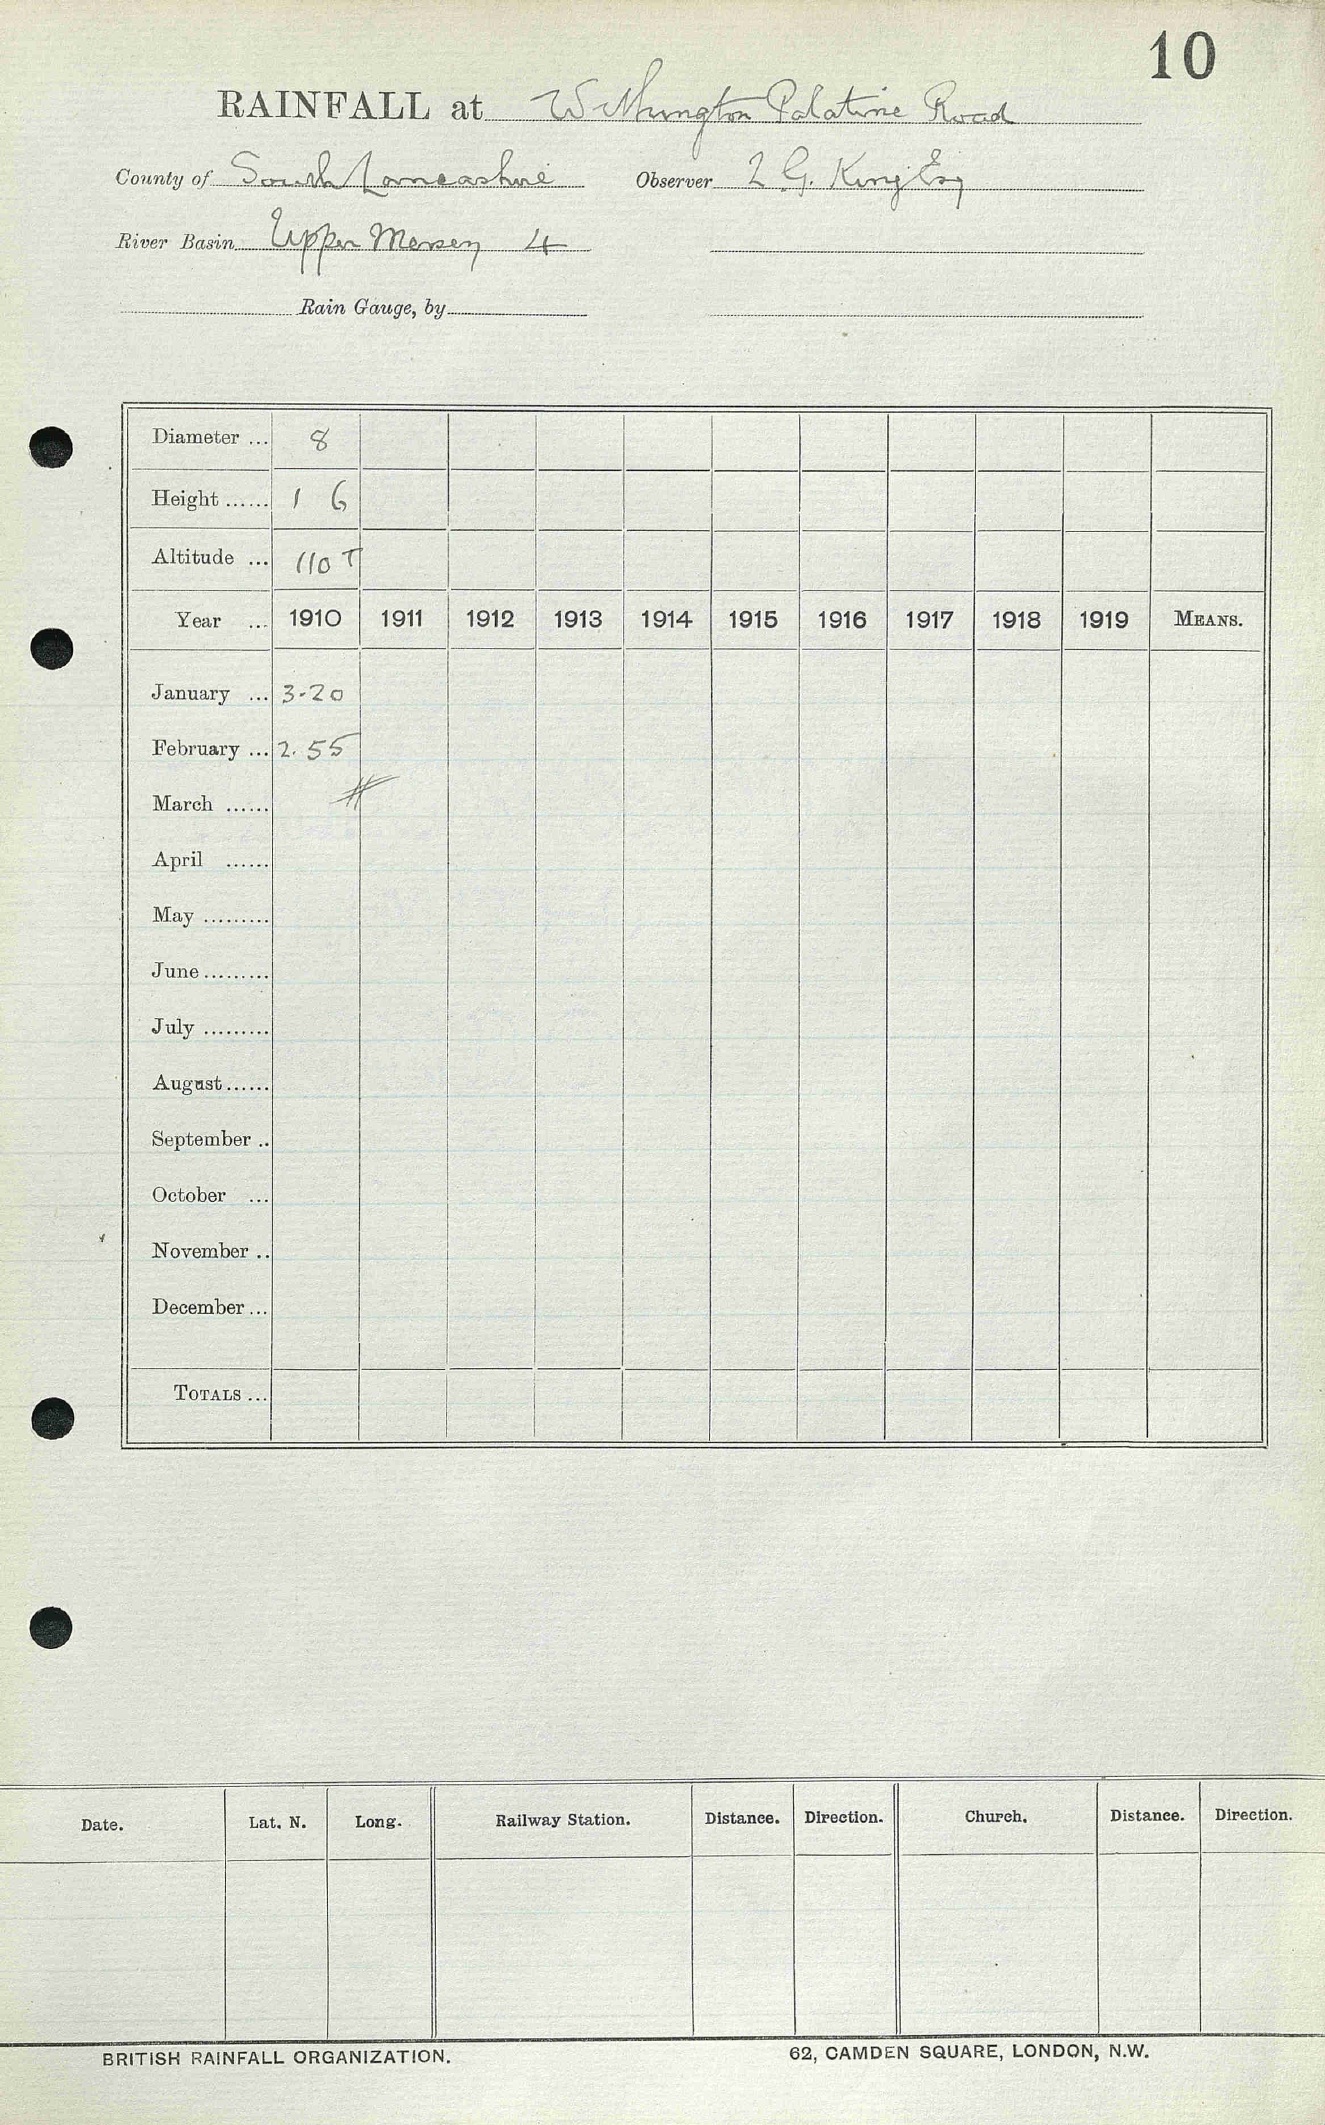 10
RAINFALL at Withington Palatine Road
County of South Lancashire Observer L G. King Esq
River Basin Upper Mersey 4
Rain Gauge, by
Diameter ... 8
Height ...... 1 6
Altitude ... 110 T
Year ... 1910 1911 1912 1913 1914 1915 1916 1917 1918 1919 MEANS.
January ... 3.20
February ... 2.55
March ...... #
April ......
May .........
June .........
July .........
August ......
September ..
October ...
November ..
December ...
TOTALS ...
Date. Lat. N. Long. Railway Station. Distance. Direction. Church. Distance. Direction.
BRITISH RAINFALL ORGANIZATION. 62, CAMDEN SQUARE, LONDON, N.W.